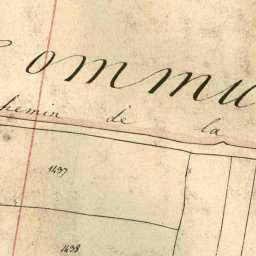 ommu
hemin de la
1437
1438